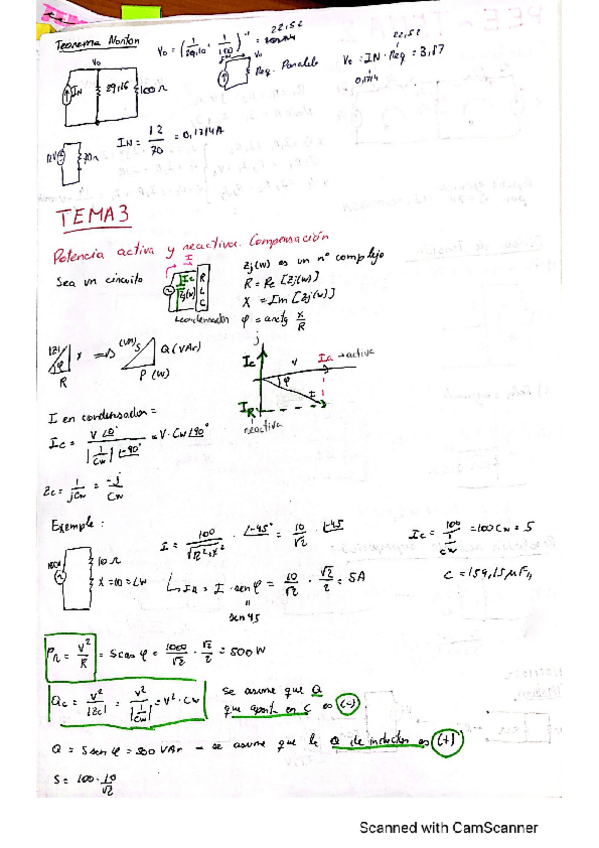 Teorema Norton
Vo = (1/29,16 + 1/100)^-1 = 22,52
Vo
IN
29,16
100Ω
Vo
Req. Paralelo
22,52
Vo = IN · Req = 3,87
0,1714
12V
70Ω
IN = 12/70 = 0,1714A
TEMA 3
Potencia activa y reactiva. Compensación
Sea un circuito
I
Ic
Zj(w)
R
L
C
condensador
Zj(w) es un nº complejo
R = Re [Zj(w)]
X = Im [Zj(w)]
φ = arctg X/R
|Z|
φ
X
R
⇒
(VA) S
Q (VAr)
P (W)
j
Ic
V
Ia → activa
φ
I
IR
reactiva
I en condensador =
Ic = V∠0° / |1/Cw| ∠-90° = V · Cw∠90°
Zc = 1/jCw = -j/Cw
Exemple :
100V
10Ω
X = 10 = Lw
I = 100/√R²+X² · ∠-45° = 10/√2 · ∠-45
IR = I · sen φ = 10/√2 · √2/2 = 5A
sen 45
Ic = 100/(1/Cw) = 100Cw = 5
C = 159,15μF
PR = V²/R = S cos φ = 1000/√2 · √2/2 = 500W
Qc = V²/|Zc| = V²/|1/Cw| = V² · Cw
Se asume que Q
que aporta en C es (-)
Q = S sen φ = 500 VAr → se asume que la Q de inductor es (+)
S = 100 · 10/√2
Scanned with CamScanner